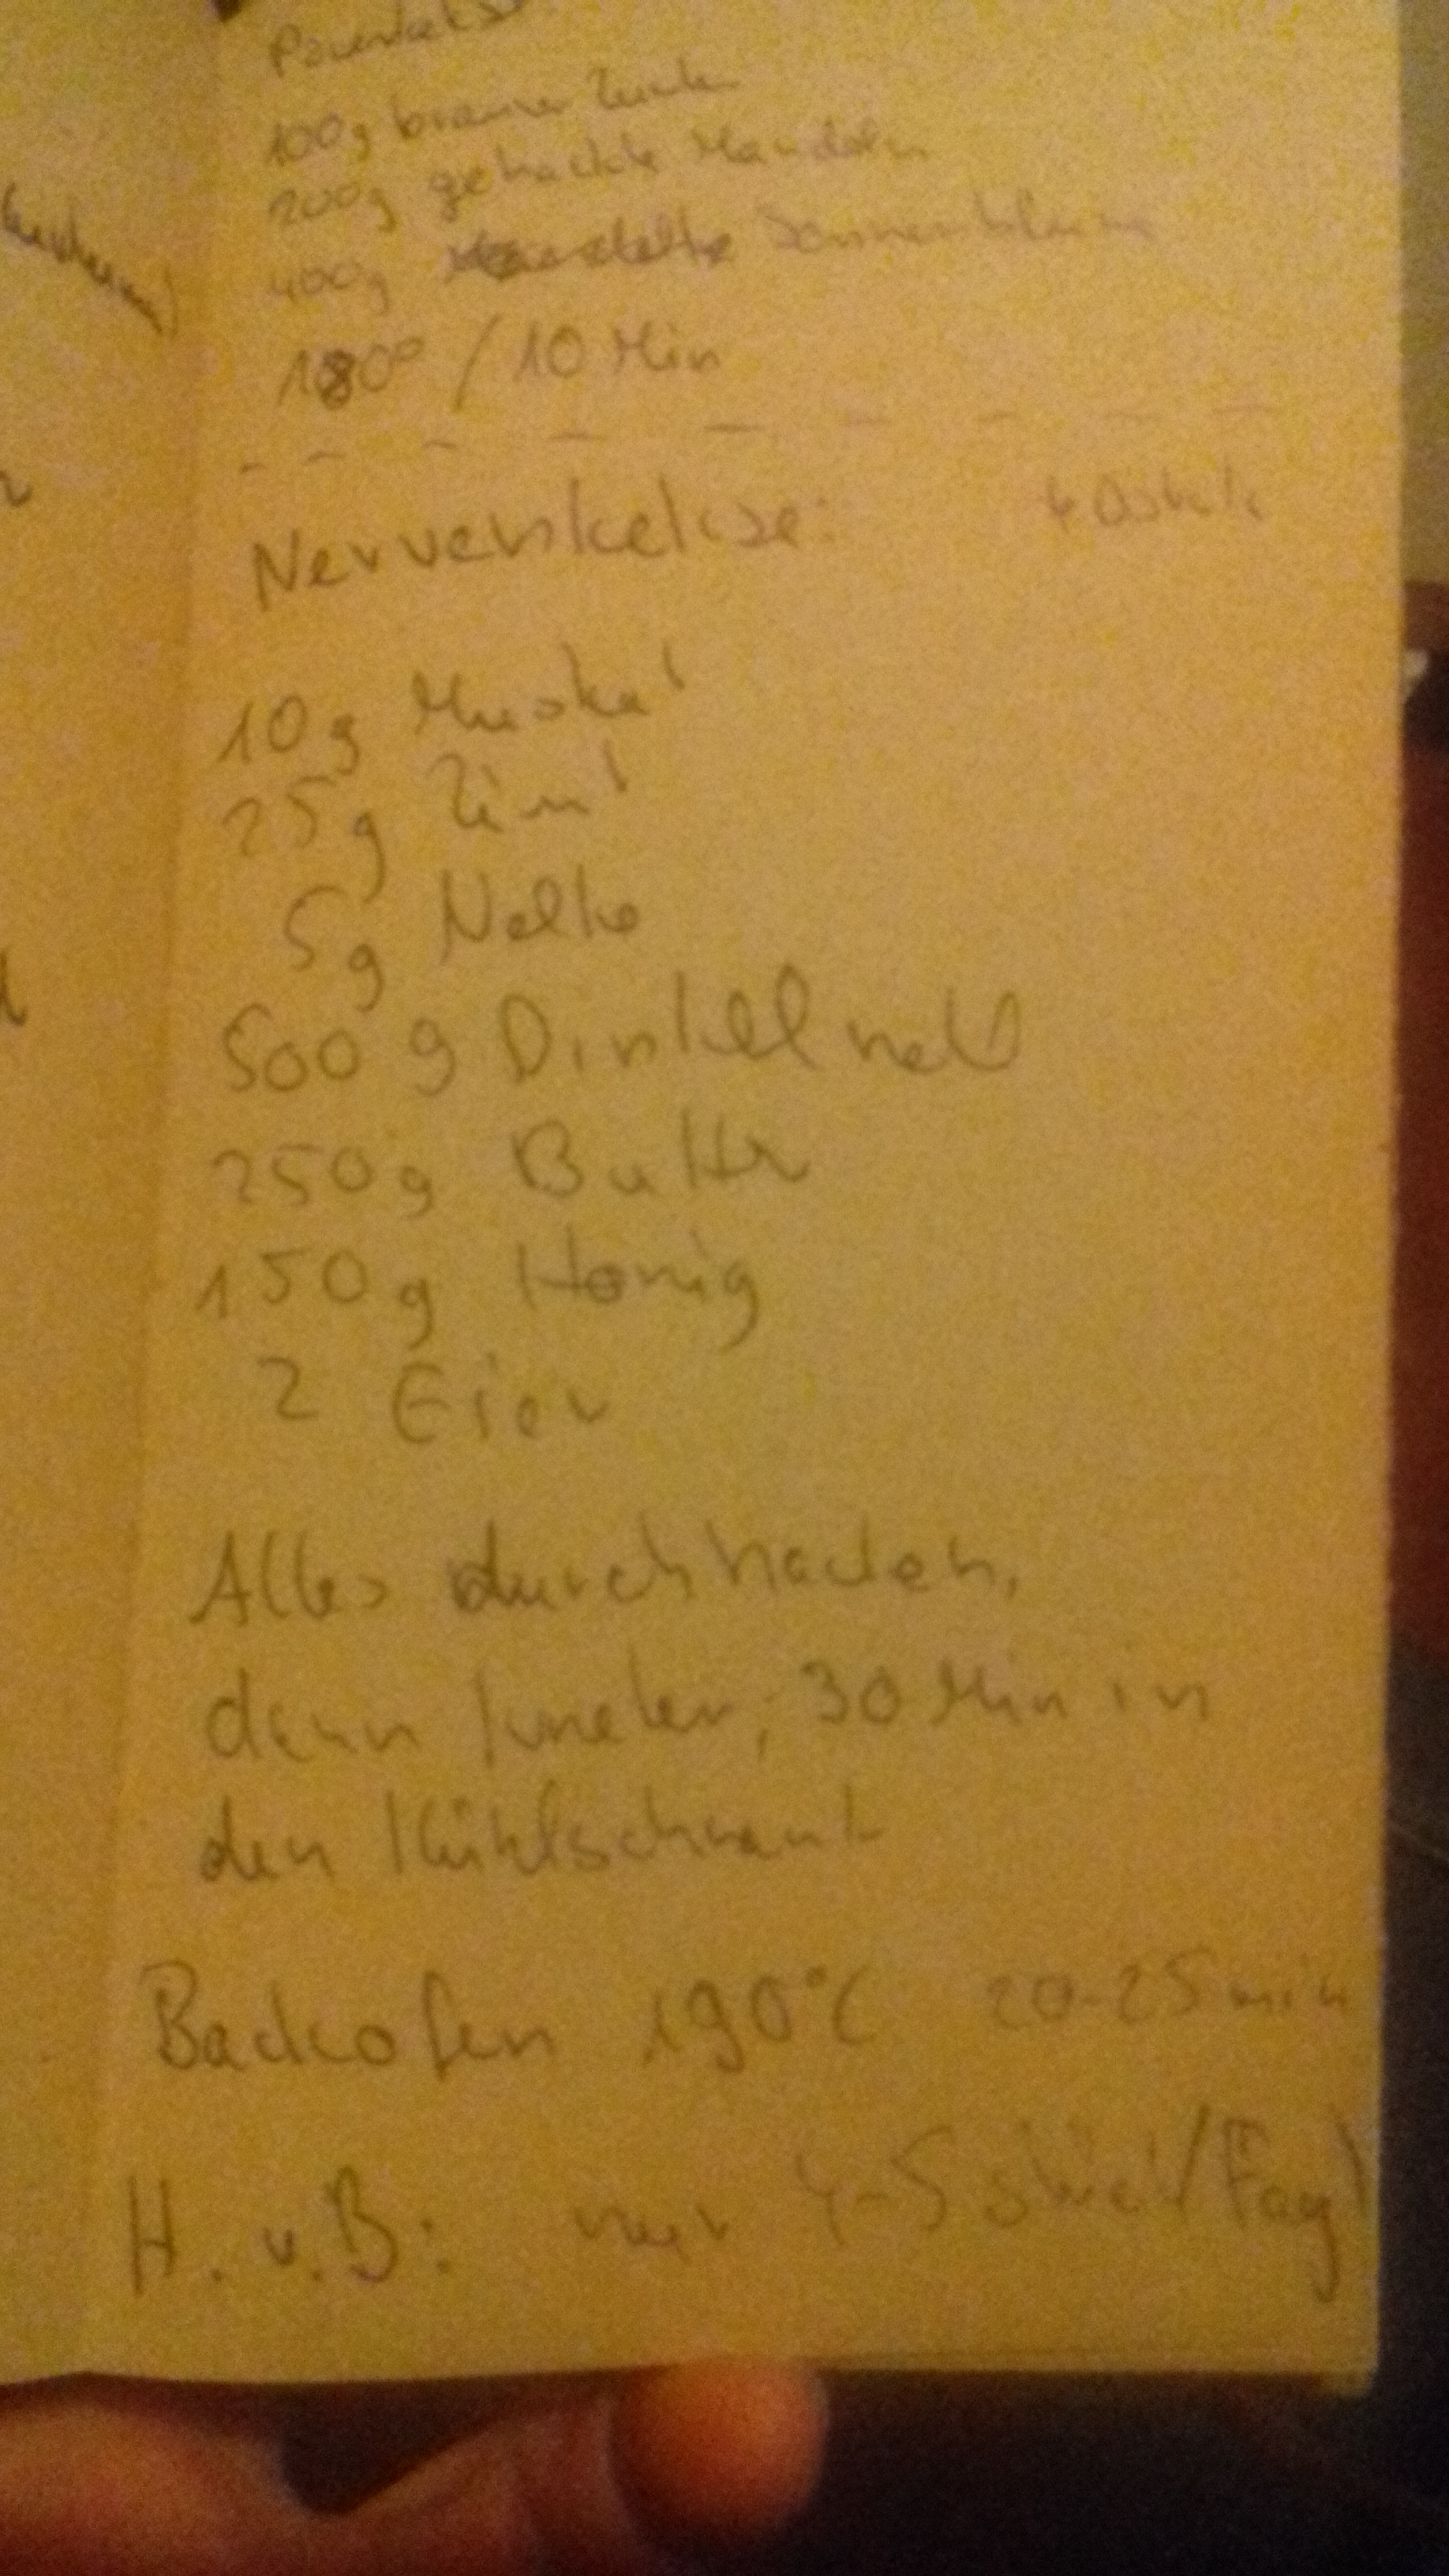 100g brauner Zucker
200g gehackte Mandeln
400g Sonnenblume
180° / 10 Min
Nervenkekse:
10g Muskat
25g Zimt
5g Nelke
500 g Dinkelmehl
250g Butter
150g Honig
2 Eier
Alles durchhacken,
dann kneten, 30 Min in
den Kühlschrank
Backofen 190°C 20-25 min
H. v. B: nur 4-5 Stück/Tag!